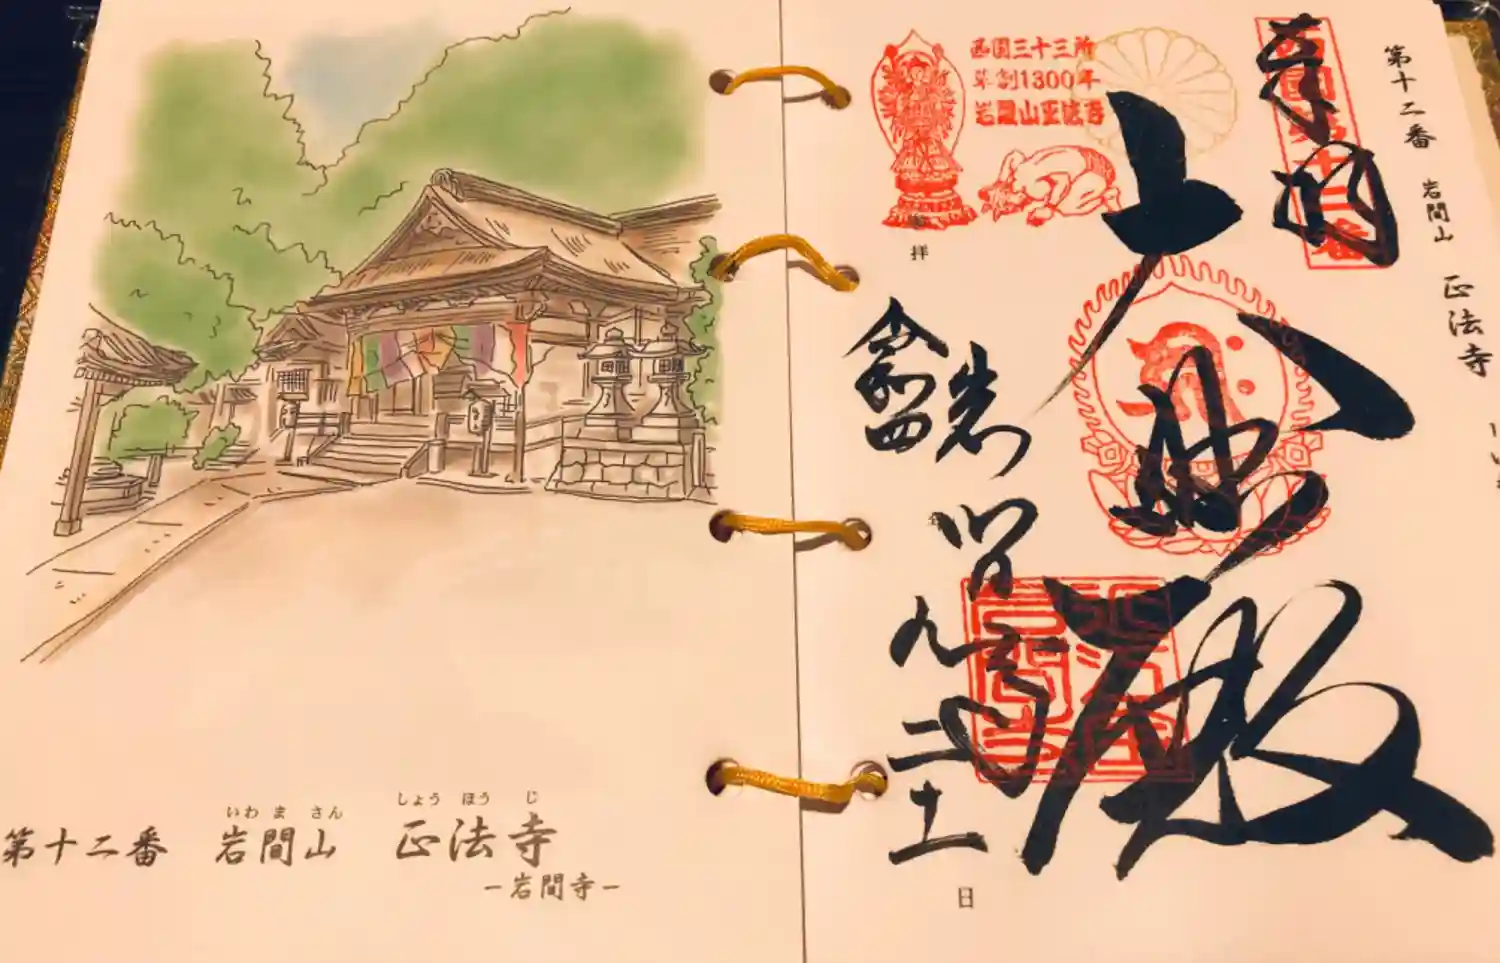 いわ ま さん しょう ほう じ
第十二番 岩間山 正法寺
−岩間寺−
第十二番 岩間山 正法寺
奉拝
西國第十二番
大悲殿
西国三十三所
草創1300年
岩間山正法寺
岩間寺
令和四
拝
九
二十一
日